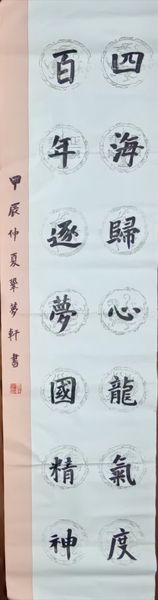 四海歸心龍氣度
百年逐夢國精神
甲辰仲夏翠萼軒書